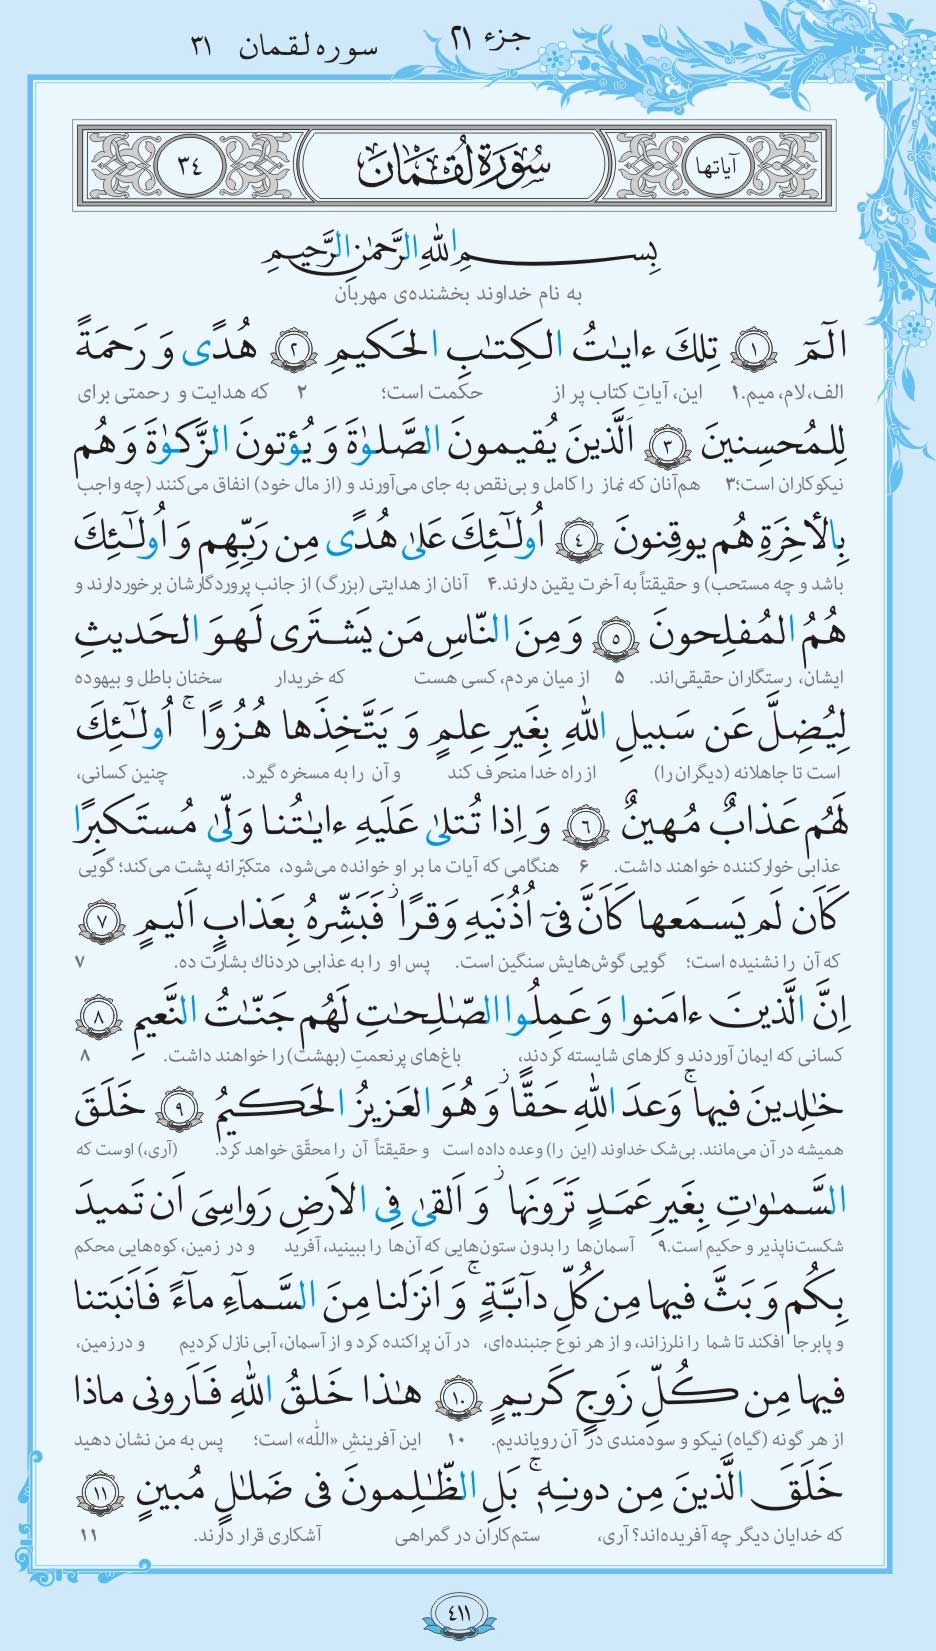 جزء ۲۱ سوره لقمان ۳۱
آیاتها سُورَةُ لُقمَان ۳٤
بِسمِ اللهِ الرَّحمٰنِ الرَّحیمِ
به نام خداوند بخشنده‌ی مهربان
الٓمٓ ﴿۱﴾ تِلكَ ءایـٰتُ الكِتـٰبِ الحَكیمِ ﴿۲﴾ هُدًی وَ رَحمَةً
الف، لام، میم.۱ این، آیاتِ کتاب پر از حکمت است؛ ۲ که هدایت و رحمتی برای
لِلمُحسِنینَ ﴿۳﴾ اَلَّذینَ یُقیمونَ الصَّلوٰةَ وَ یُؤتونَ الزَّكوٰةَ وَ هُم
نیکوکاران است؛۳ هم‌آنان که نماز را کامل و بی‌نقص به جای می‌آورند و (از مال خود) انفاق می‌کنند (چه واجب
بِالأخِرَةِ هُم یوقِنونَ ﴿٤﴾ اُولـٰٓئِكَ عَلیٰ هُدًی مِن رَبِّهِم وَ اُولـٰٓئِكَ
باشد و چه مستحب) و حقیقتاً به آخرت یقین دارند.۴ آنان از هدایتی (بزرگ) از جانب پروردگارشان برخوردارند و
هُمُ المُفلِحونَ ﴿۵﴾ وَ مِنَ النّاسِ مَن یَشتَری لَهوَ الحَدیثِ
ایشان، رستگاران حقیقی‌اند. ۵ از میان مردم، کسی هست که خریدار سخنان باطل و بیهوده
لِیُضِلَّ عَن سَبیلِ اللهِ بِغَیرِ عِلمٍ وَ یَتَّخِذَها هُزُوًا ۚ اُولـٰٓئِكَ
است تا جاهلانه (دیگران را) از راه خدا منحرف کند و آن را به مسخره گیرد. چنین کسانی،
لَهُم عَذابٌ مُهینٌ ﴿٦﴾ وَ اِذا تُتلیٰ عَلَیهِ ءایـٰتُنا وَلّیٰ مُستَكبِرًا
عذابی خوارکننده خواهند داشت. ۶ هنگامی که آیات ما بر او خوانده می‌شود، متکبّرانه پشت می‌کند؛ گویی
كَاَن لَم یَسمَعها كَاَنَّ فیٓ اُذُنَیهِ وَقرًا ۖ فَبَشِّرهُ بِعَذابٍ اَلیمٍ ﴿۷﴾
که آن را نشنیده است؛ گویی گوش‌هایش سنگین است. پس او را به عذابی دردناك بشارت ده. ۷
اِنَّ الَّذینَ ءامَنوا وَ عَمِلُوا الصّـٰلِحـٰتِ لَهُم جَنّـٰتُ النَّعیمِ ﴿۸﴾
کسانی که ایمان آوردند و کارهای شایسته کردند، باغ‌های پرنعمتِ (بهشت) را خواهند داشت. ۸
خـٰلِدینَ فیها ۚ وَعدَ اللهِ حَقًّا ۚ وَ هُوَ العَزیزُ الحَكیمُ ﴿۹﴾ خَلَقَ
همیشه در آن می‌مانند. بی‌شک خداوند (این را) وعده داده است و حقیقتاً آن را محقّق خواهد کرد. (آری،) اوست که
السَّمـٰوٰتِ بِغَیرِ عَمَدٍ تَرَونَها ۖ وَ اَلقیٰ فِی الاَرضِ رَواسِیَ اَن تَمیدَ
شکست‌ناپذیر و حکیم است.۹ آسمان‌ها را بدون ستون‌هایی که آن‌ها را ببینید، آفرید و در زمین، کوه‌هایی محکم
بِكُم وَ بَثَّ فیها مِن كُلِّ دآبَّةٍ ۚ وَ اَنزَلنا مِنَ السَّمآءِ مآءً فَاَنبَتنا
و پابرجا افکند تا شما را نلرزاند، و از هر نوع جنبنده‌ای، در آن پراکنده کرد و از آسمان، آبی نازل کردیم و در زمین،
فیها مِن كُلِّ زَوجٍ كَریمٍ ﴿۱۰﴾ هـٰذا خَلقُ اللهِ فَاَرونی ماذا
از هر گونه (گیاه) نیکو و سودمندی در آن رویاندیم. ۱۰ این آفرینشِ «الله» است؛ پس به من نشان دهید
خَلَقَ الَّذینَ مِن دونِهٖ ۚ بَلِ الظّـٰلِمونَ فی ضَلـٰلٍ مُبینٍ ﴿۱۱﴾
که خدایان دیگر چه آفریده‌اند؟ آری، ستم‌کاران در گمراهی آشکاری قرار دارند. ۱۱
٤۱۱